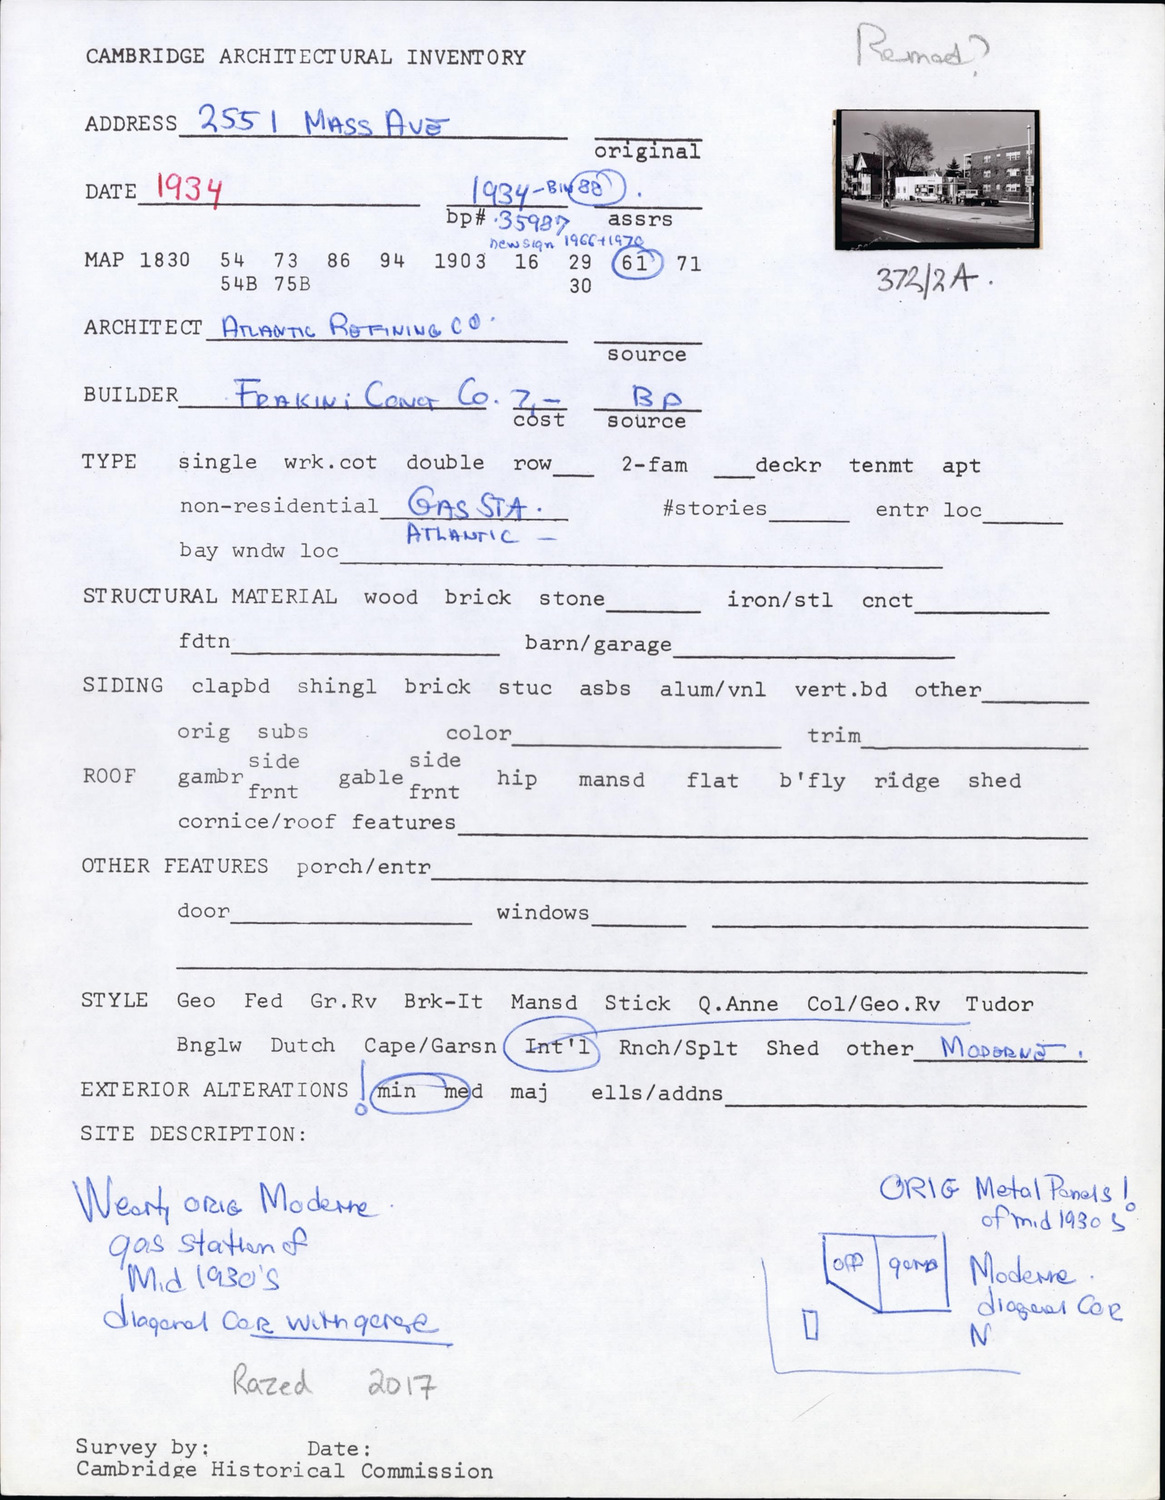 CAMBRIDGE ARCHITECTURAL INVENTORY
Remod?
ADDRESS 2551 MASS AVE
original
DATE 1934 1934-BIN 88
bp# 35987 assrs
new sign 1966+1970
MAP 1830 54 73 86 94 1903 16 29 61 71
54B 75B 30
372/2A.
ARCHITECT ATLANTIC REFINING CO.
source
BUILDER Const Co. 7,- BP
cost source
TYPE single wrk.cot double row 2-fam deckr tenmt apt
non-residential GAS STA. #stories entr loc
ATLANTIC -
bay wndw loc
STRUCTURAL MATERIAL wood brick stone iron/stl cnct
fdtn barn/garage
SIDING clapbd shingl brick stuc asbs alum/vnl vert.bd other
orig subs color trim
side side
ROOF gambr gable hip mansd flat b'fly ridge shed
frnt frnt
cornice/roof features
OTHER FEATURES porch/entr
door windows
STYLE Geo Fed Gr.Rv Brk-It Mansd Stick Q.Anne Col/Geo.Rv Tudor
Bnglw Dutch Cape/Garsn Int'l Rnch/Splt Shed other MODERNE.
EXTERIOR ALTERATIONS ! min med maj ells/addns
SITE DESCRIPTION:
ORIG Moderne
gas station of
Mid 1930's
diagonal Cor with garage
ORIG Metal Panels!
of mid 1930s
off
Moderne.
diagonal Cor
N
Razed 2017
Survey by: Date:
Cambridge Historical Commission